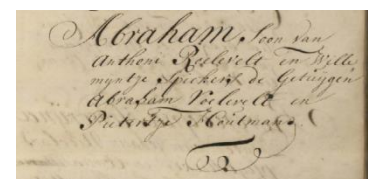 Abraham, Soon van
Anthoni Roelevelt en Wille
myntje Spickers de Getuijgen
Abraham Roelevelt en
Pietertje Houtman.